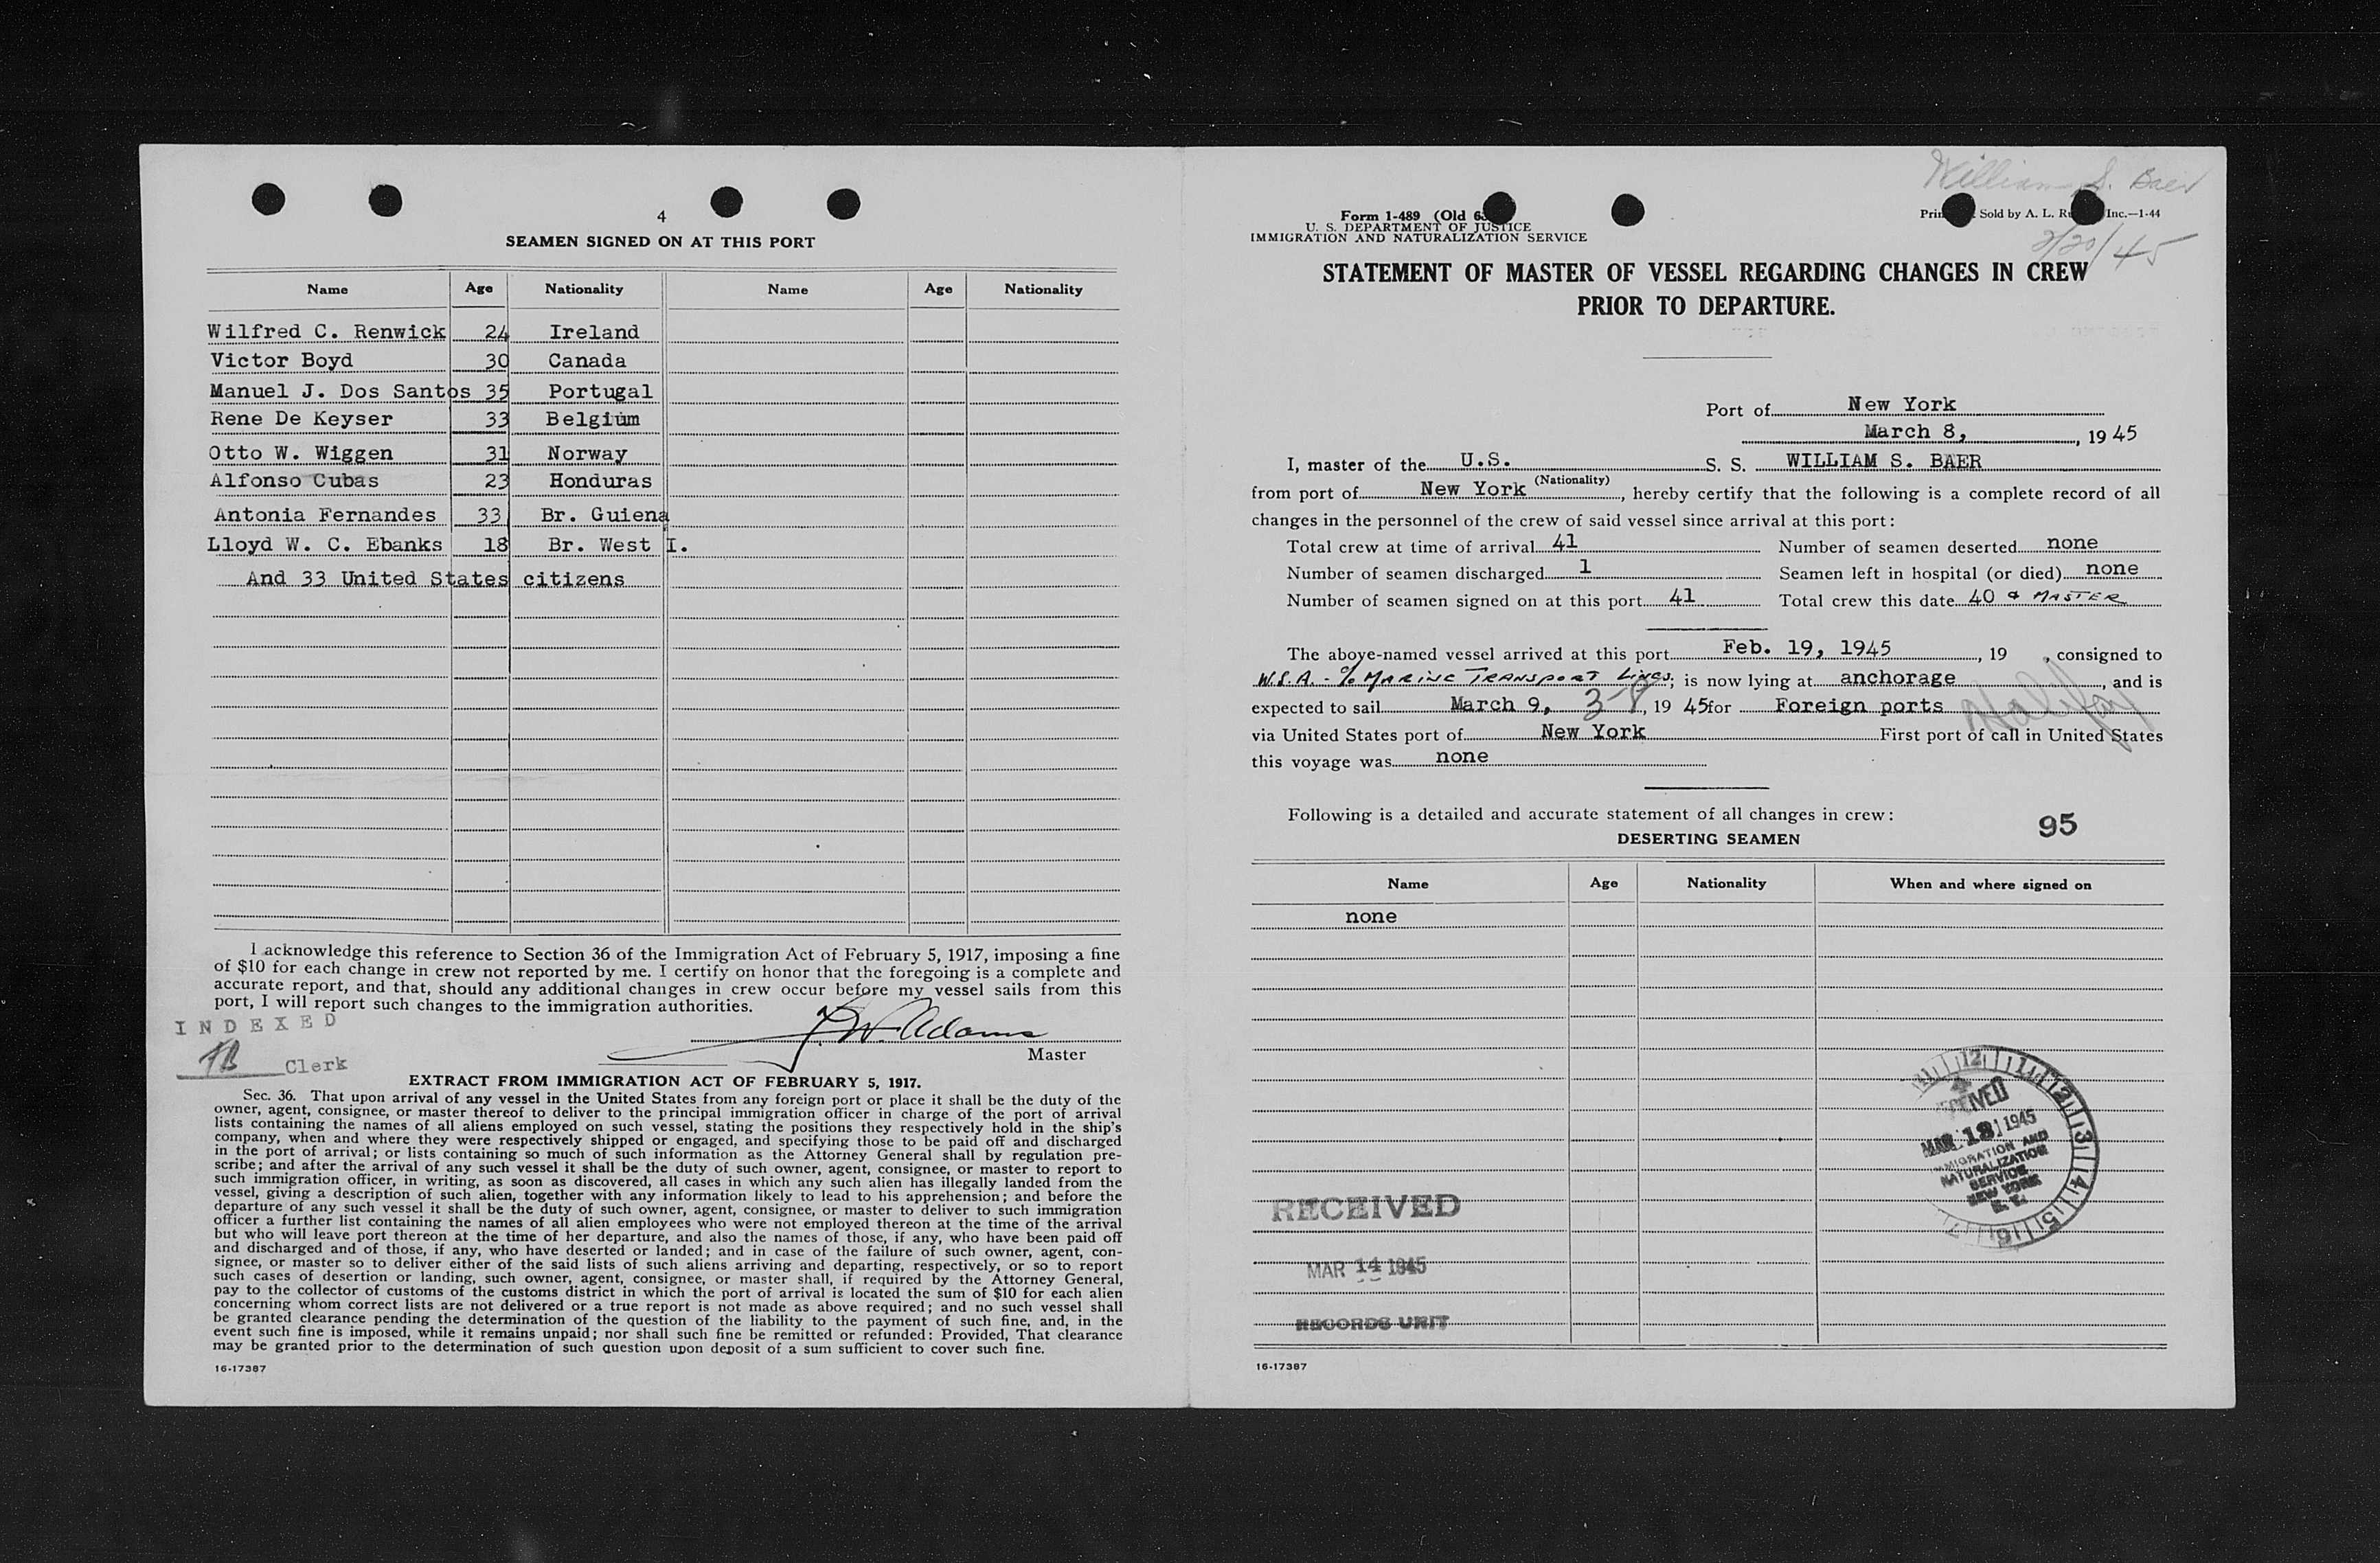 4
SEAMEN SIGNED ON AT THIS PORT
Name Age Nationality Name Age Nationality
Wilfred C. Renwick 24 Ireland
Victor Boyd 30 Canada
Manuel J. Dos Santos 35 Portugal
Rene De Keyser 33 Belgium
Otto W. Wiggen 31 Norway
Alfonso Cubas 23 Honduras
Antonia Fernandes 33 Br. Guiena
Lloyd W. C. Ebanks 18 Br. West I.
And 33 United States citizens
I acknowledge this reference to Section 36 of the Immigration Act of February 5, 1917, imposing a fine
of $10 for each change in crew not reported by me. I certify on honor that the foregoing is a complete and
accurate report, and that, should any additional changes in crew occur before my vessel sails from this
port, I will report such changes to the immigration authorities.
INDEXED
Clerk
W. Adams
Master
EXTRACT FROM IMMIGRATION ACT OF FEBRUARY 5, 1917.
Sec. 36. That upon arrival of any vessel in the United States from any foreign port or place it shall be the duty of the
owner, agent, consignee, or master thereof to deliver to the principal immigration officer in charge of the port of arrival
lists containing the names of all aliens employed on such vessel, stating the positions they respectively hold in the ship's
company, when and where they were respectively shipped or engaged, and specifying those to be paid off and discharged
in the port of arrival; or lists containing so much of such information as the Attorney General shall by regulation pre-
scribe; and after the arrival of any such vessel it shall be the duty of such owner, agent, consignee, or master to report to
such immigration officer, in writing, as soon as discovered, all cases in which any such alien has illegally landed from the
vessel, giving a description of such alien, together with any information likely to lead to his apprehension; and before the
departure of any such vessel it shall be the duty of such owner, agent, consignee, or master to deliver to such immigration
officer a further list containing the names of all alien employees who were not employed thereon at the time of the arrival
but who will leave port thereon at the time of her departure, and also the names of those, if any, who have been paid off
and discharged and of those, if any, who have deserted or landed; and in case of the failure of such owner, agent, con-
signee, or master so to deliver either of the said lists of such aliens arriving and departing, respectively, or so to report
such cases of desertion or landing, such owner, agent, consignee, or master shall, if required by the Attorney General,
pay to the collector of customs of the customs district in which the port of arrival is located the sum of $10 for each alien
concerning whom correct lists are not delivered or a true report is not made as above required; and no such vessel shall
be granted clearance pending the determination of the question of the liability to the payment of such fine, and, in the
event such fine is imposed, while it remains unpaid; nor shall such fine be remitted or refunded: Provided, That clearance
may be granted prior to the determination of such question upon deposit of a sum sufficient to cover such fine.
16-17387
William S. Baer
Form 1-489 (Old 6
Sold by A. L. Inc.—1-44
U. S. DEPARTMENT OF JUSTICE
IMMIGRATION AND NATURALIZATION SERVICE
2/20/45
STATEMENT OF MASTER OF VESSEL REGARDING CHANGES IN CREW
PRIOR TO DEPARTURE.
Port of New York
March 8, , 19 45
I, master of the U.S. S. S. WILLIAM S. BAER
(Nationality)
from port of New York , hereby certify that the following is a complete record of all
changes in the personnel of the crew of said vessel since arrival at this port:
Total crew at time of arrival 41 Number of seamen deserted none
Number of seamen discharged 1 Seamen left in hospital (or died) none
Number of seamen signed on at this port 41 Total crew this date 40 & MASTER
The above-named vessel arrived at this port Feb. 19, 1945 , 19 , consigned to
W.S.A. - c/o MARINE TRANSPORT LINES; is now lying at anchorage , and is
expected to sail March 9, 3-8 , 19 45 for Foreign ports Halifax
via United States port of New York First port of call in United States
this voyage was none
Following is a detailed and accurate statement of all changes in crew:
95
DESERTING SEAMEN
Name Age Nationality When and where signed on
none
RECEIVED
MAR 13 1945
IMMIGRATION AND
NATURALIZATION
SERVICE
NEW YORK
N. Y.
RECEIVED
MAR 14 1945
RECORDS UNIT
16-17387